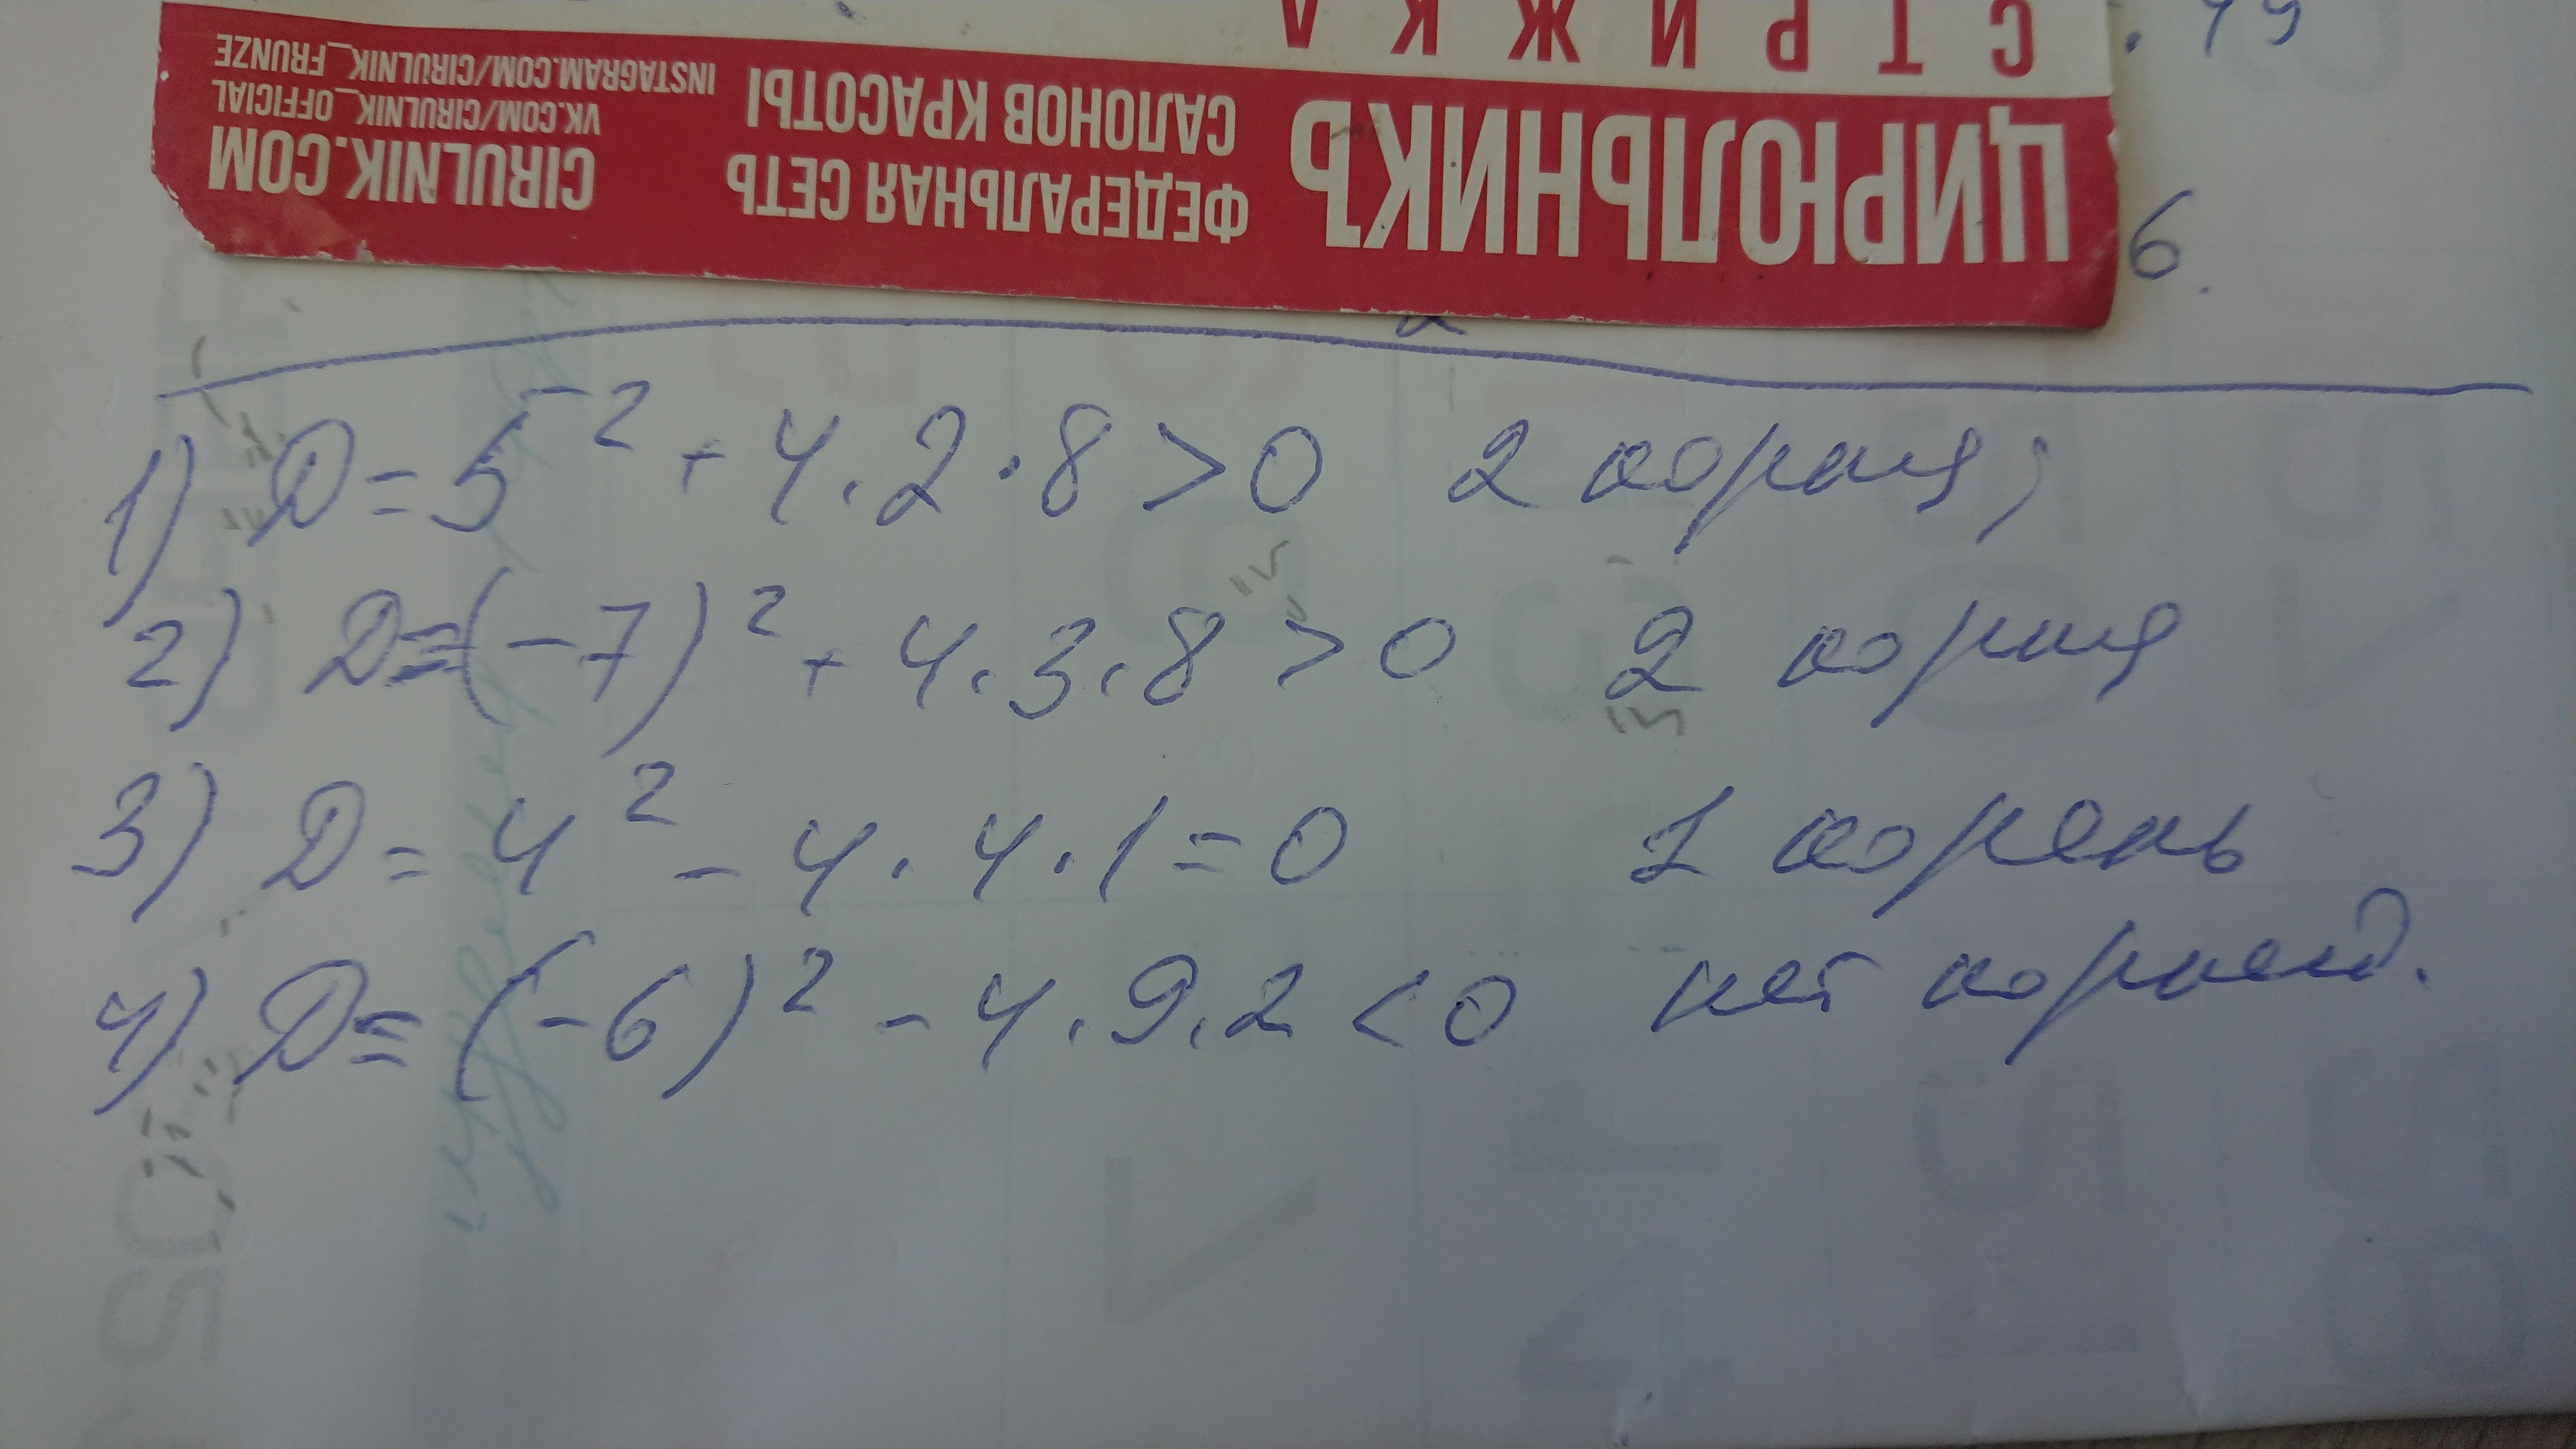 .49
С Т Р И Ж К А
ЦИРЮЛЬНИКЪ
ФЕДЕРАЛЬНАЯ СЕТЬ
САЛОНОВ КРАСОТЫ
CIRULNIK.COM
VK.COM/CIRULNIK_OFFICIAL
INSTAGRAM.COM/CIRULNIK_FRUNZE
6.
1) D = 5² + 4·2·8 > 0 2 корня;
2) D = (-7)² + 4·3·8 > 0 2 корня
3) D = 4² - 4·4·1 = 0 1 корень
4) D = (-6)² - 4·9·2 < 0 нет корней.